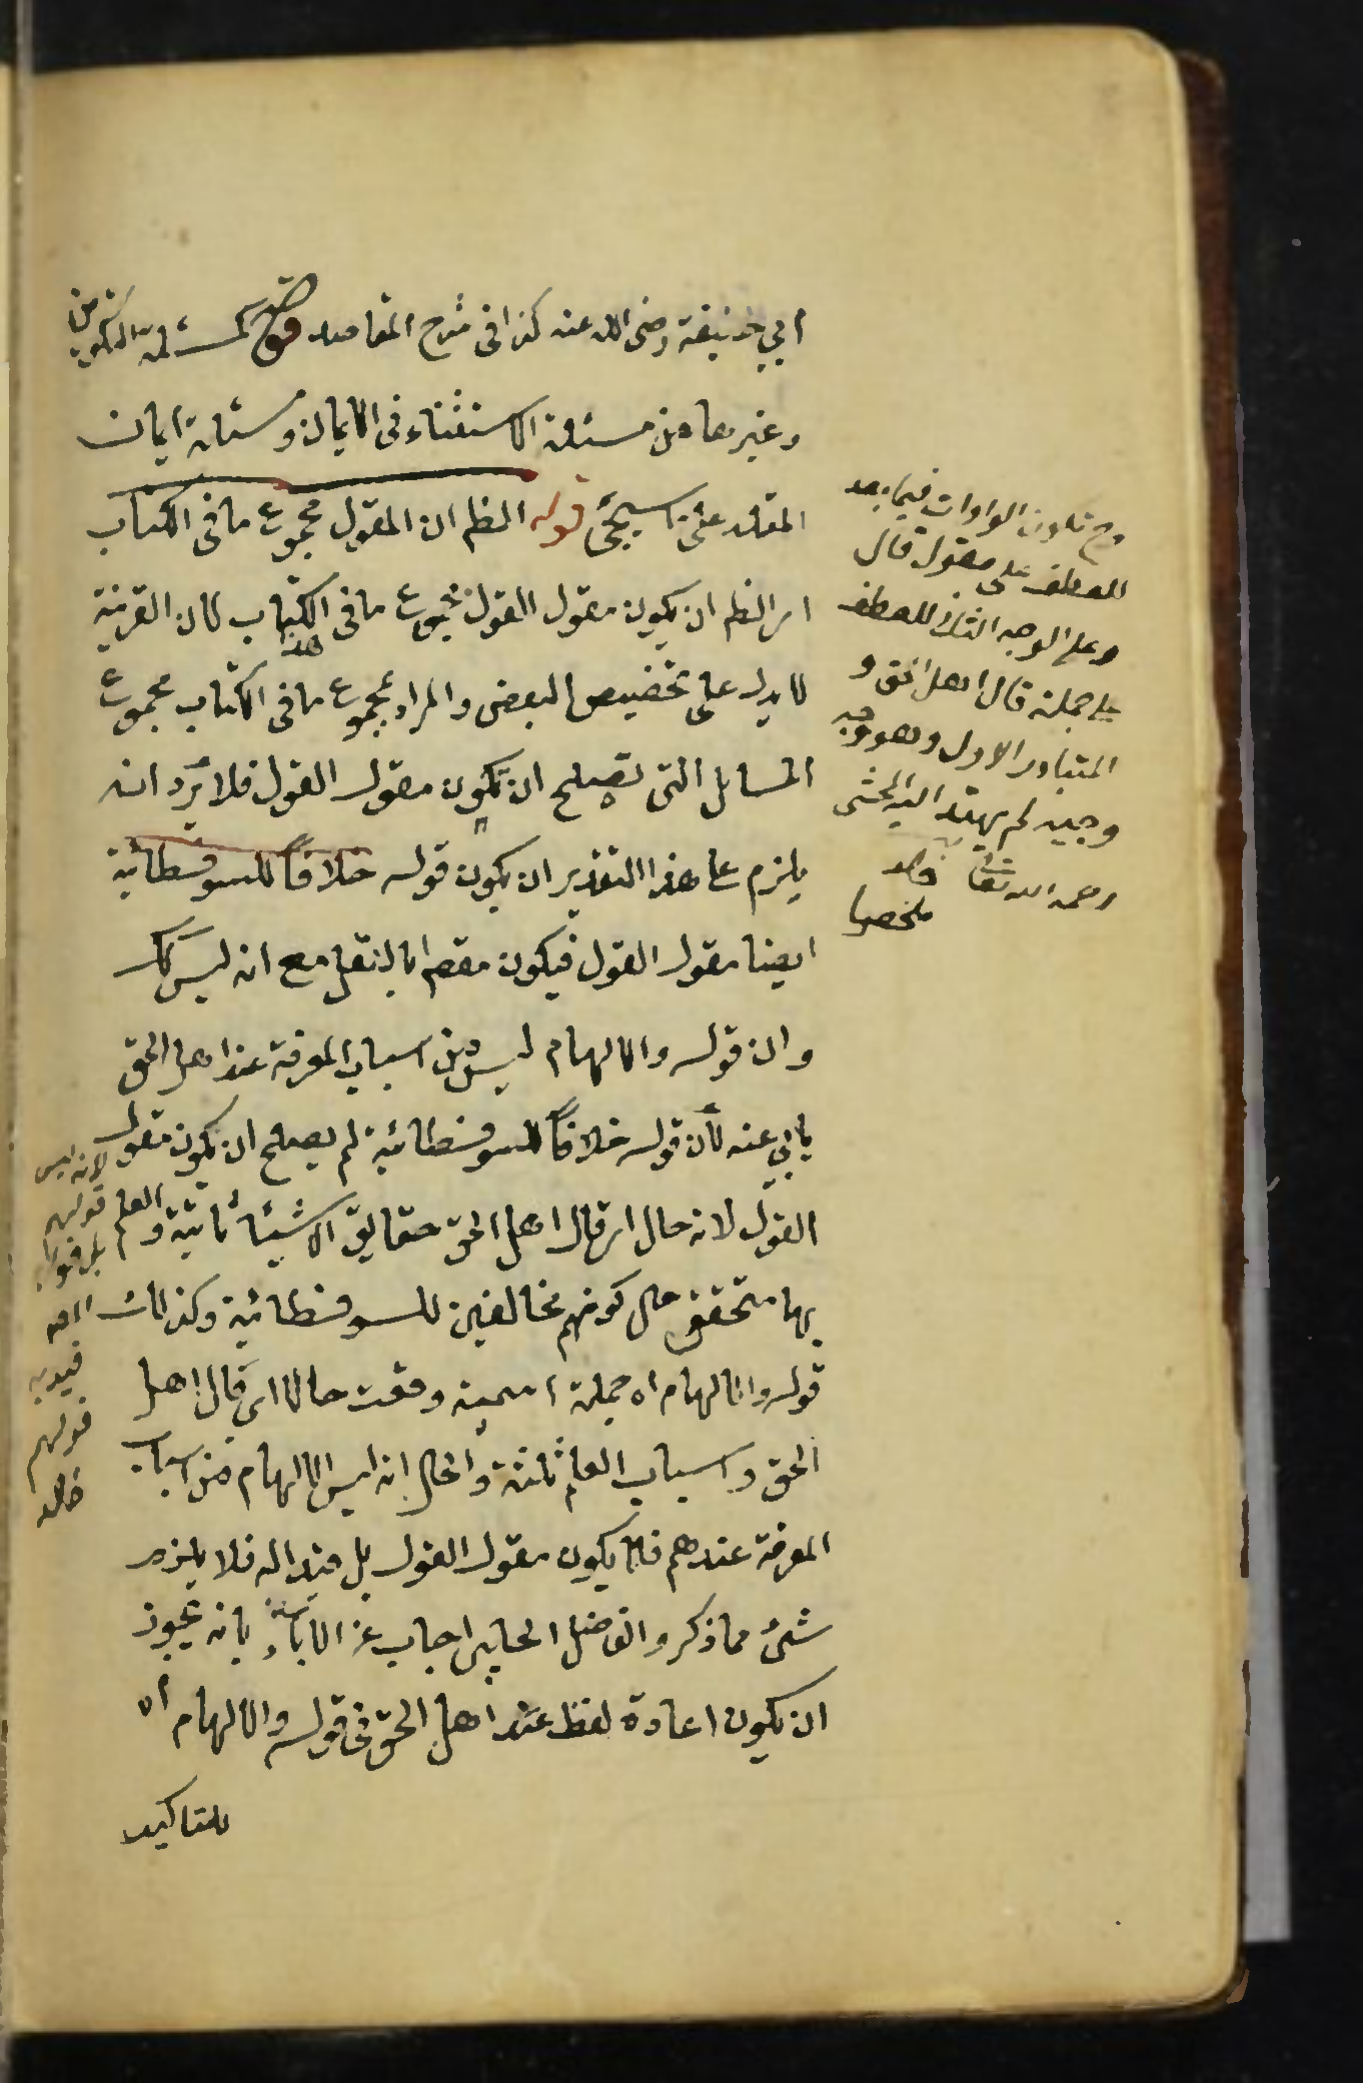 ابي حنيفة رضى الله عنه كذا فى شرح المقاصد قوله كمسئلة التكوين
وغيرها من مسئلة الاستثناء فى الايمان ومسئلة ايمان
المقلد على ما سيجئ قوله الظ ان المقول مجموع ما فى الكتاب
اى الظ ان يكون مقول القول مجموع ما فى الكتاب لان القرينة
لا يدل على تخصيص البعض والمراد بمجموع ما فى الكتاب مجموع
المسائل التى تصلح ان تكون مقول القول فلا يرد انه
يلزم على هذا التقدير ان يكون قوله خلافاً للسوفسطائية
ايضا مقول القول فيكون مقصم انا لا نقل مع انه ليس كك
وان قوله والالهام ليس من اسباب المعرفة عند اهل الحق
يابى عنه لأن قوله خلافاً للسوفسطائية لم يصلح ان يكون مقول
القول لانه حال اى قال اهل الحق حقايق الاشياء ثابتة والعلم
بها متحقق حال كونهم مخالفين للسوفسطائية وكذلك
قوله والالهام اه جملة اسمية وقعت حالا اى قال اهل
الحق واسباب العلم ثلثة والحال انه ليس الالهام من اسباب
المعرفة عندهم فلا يكون مقول القول بل قيدا له فلا يلزم
شئ مما ذكر والفاضل الجلبى اجاب عن الاباء بانه يجوز
ان يكون اعادة لفظ عند اهل الحق فى قوله والالهام اه
للتاكيد
وح تكون الواوات فيما بعد
للعطف على مقول قال
وعلى الوجه الثانى للعطف
على جملة قال اهل الحق و
المتبادر الاول وهو وجه
وجيه لم يهتد اليه المحشى
رحمه الله تعالى خالد
ملخصا
لانه ليس
قولهم
بل
قيد به
قولهم
خالد